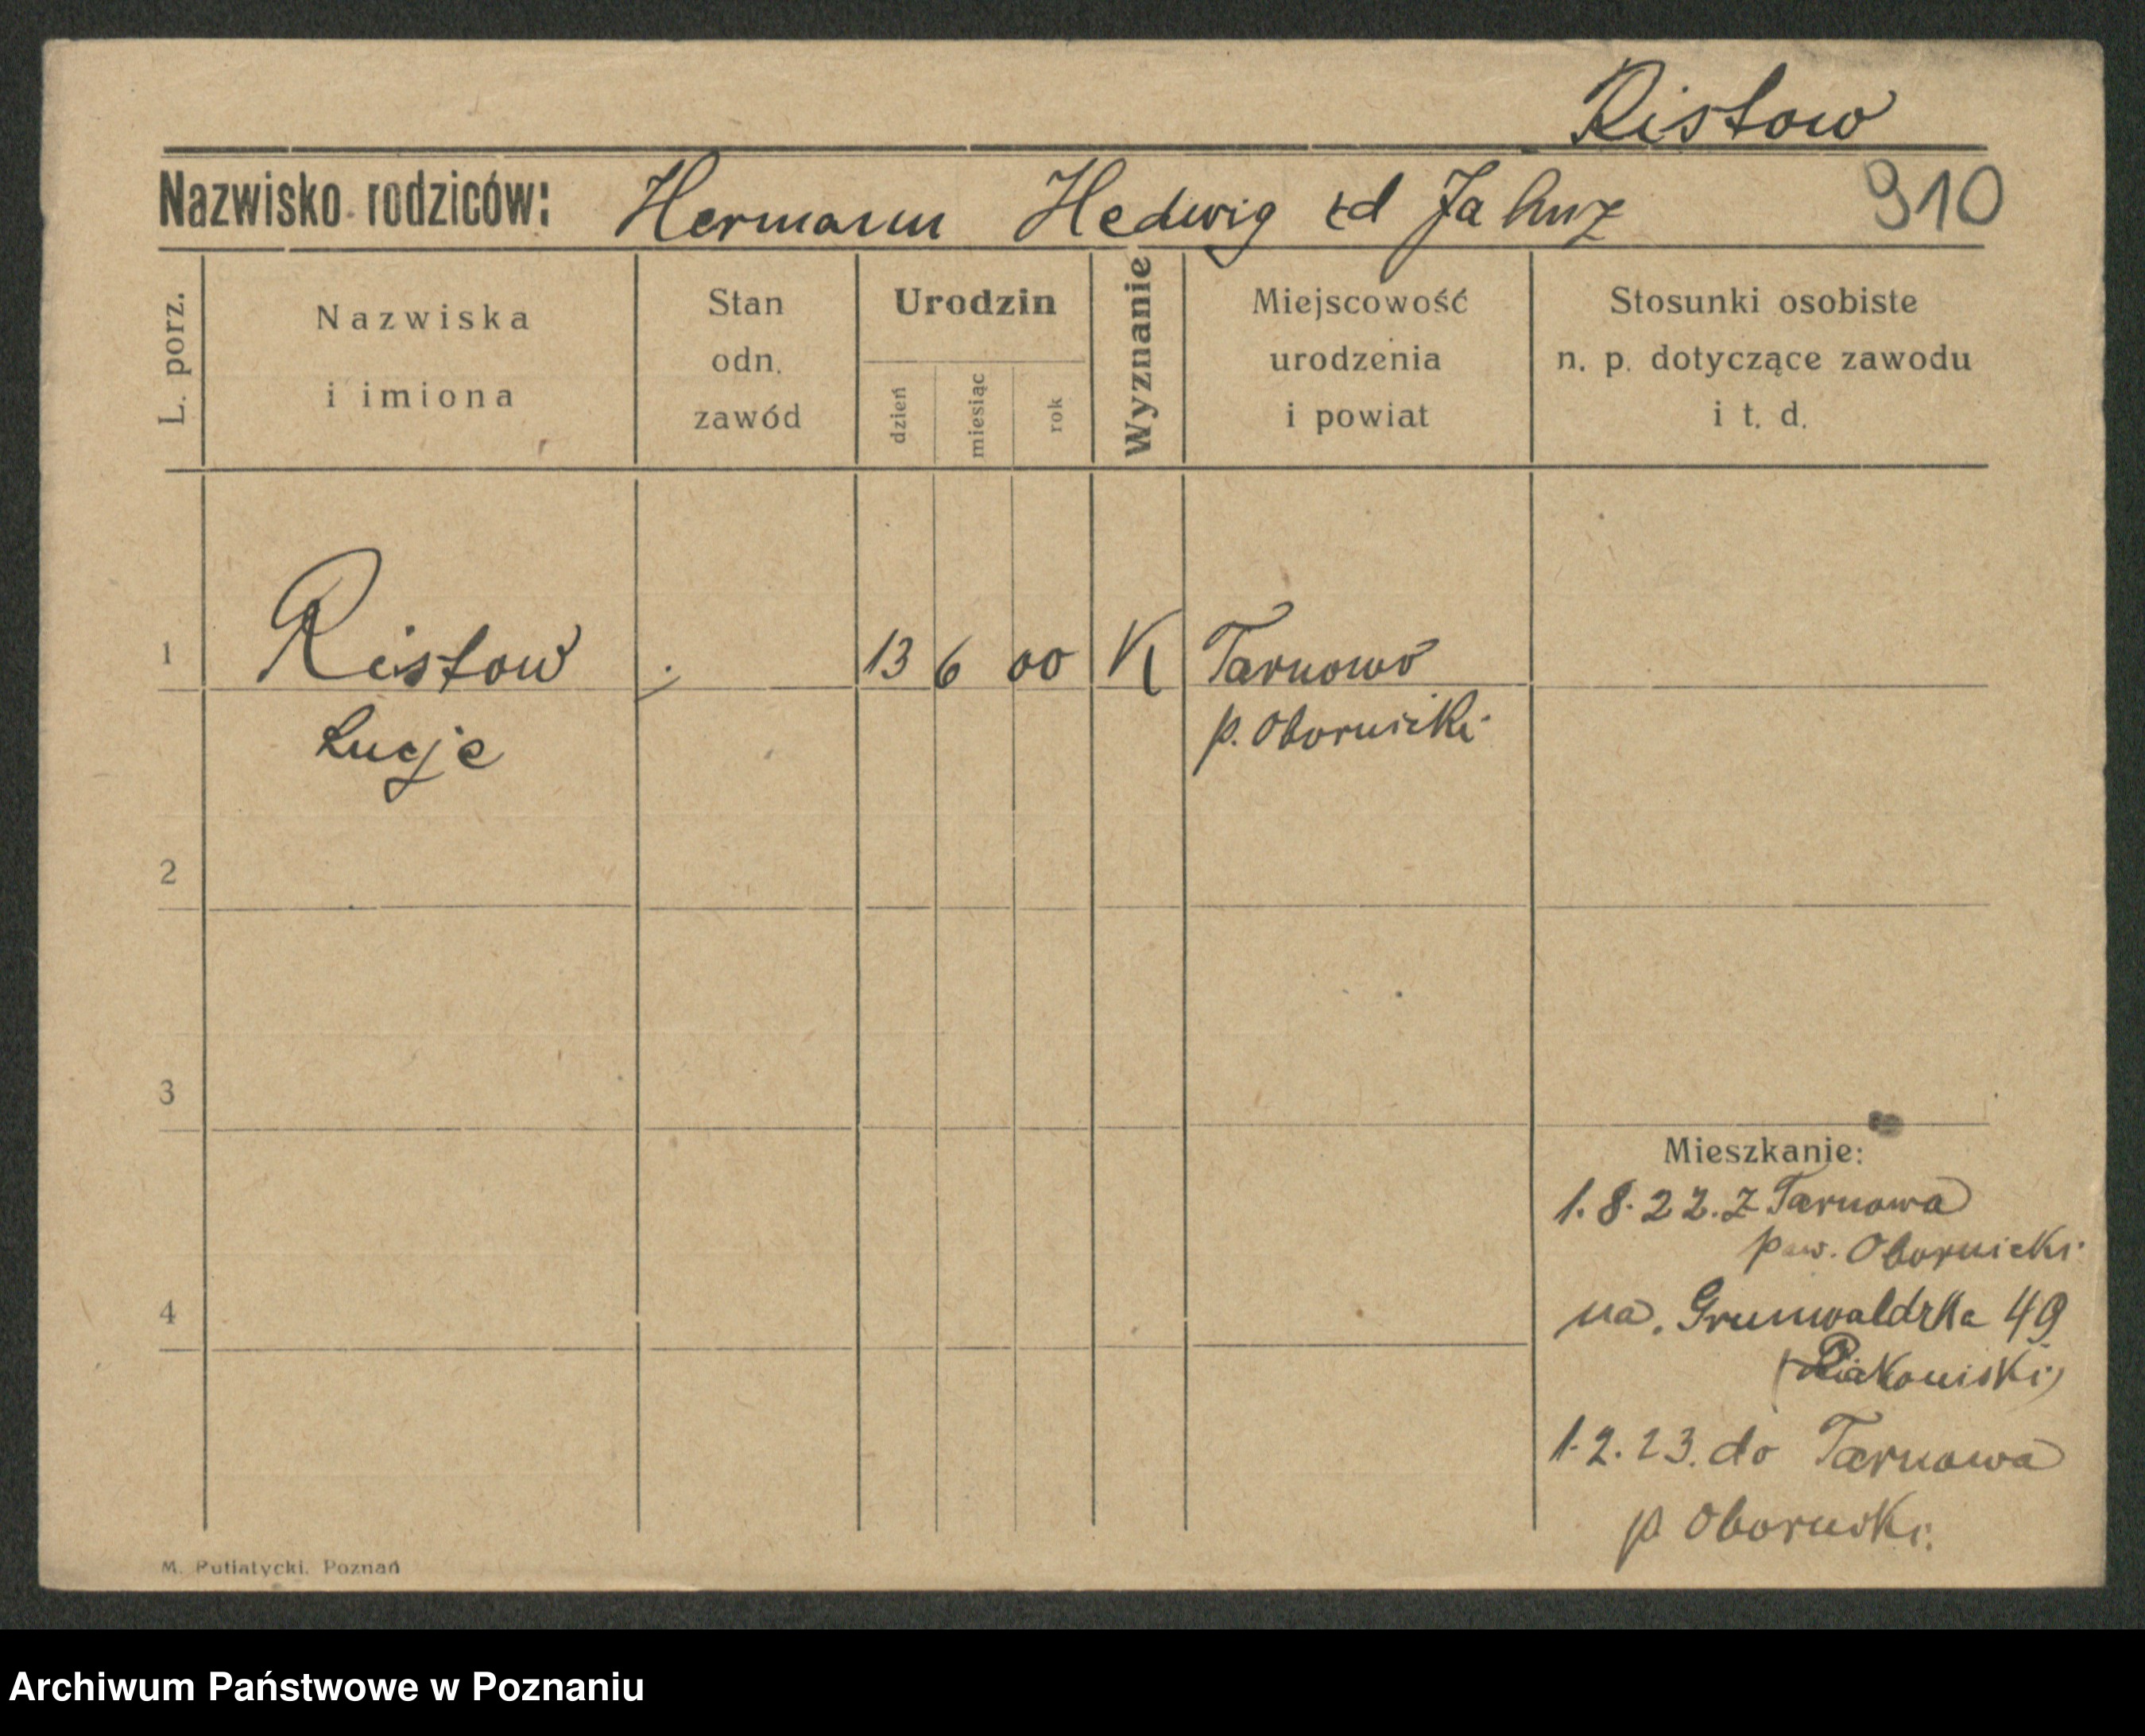 Ristow
Nazwisko rodziców: Hermann Hedwig zd 910
L. porz.
Nazwiska
i imiona
Stan
odn.
zawód
Urodzin
dzień
miesiąc
rok
Wyznanie
Miejscowość
urodzenia
i powiat
Stosunki osobiste
n. p. dotyczące zawodu
i t. d.
1 Ristow 13 6 00 K Tarnowo
Lucje p. Obornicki
2
3
4
Mieszkanie:
1.8.22. z Tarnowa
pow. Obornicki
na. 49
1.2.23. do Tarnowa
p Obornicki
M. Putiatycki. Poznań
Archiwum Państwowe w Poznaniu